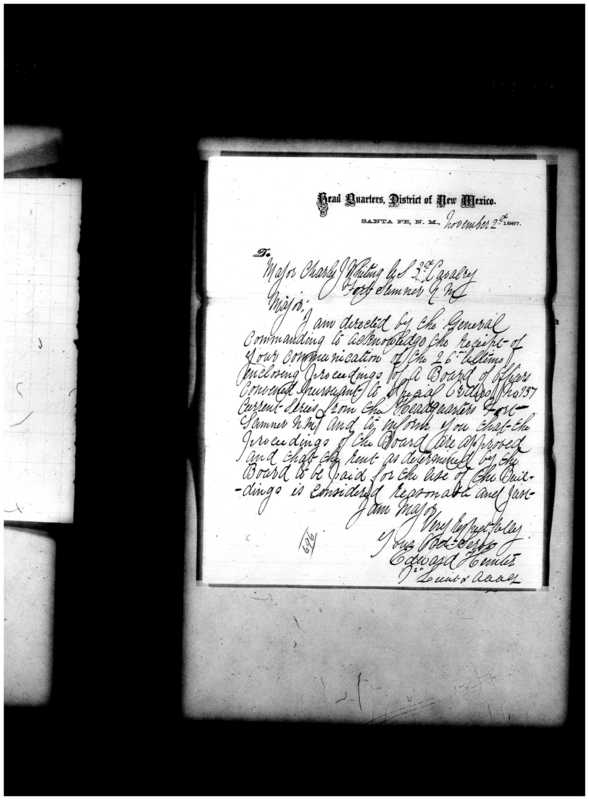 Head Quarters, District of New Mexico.
SANTA FE, N. M., November 2nd 1867.
To
Major Charles J Whiting U S 3rd Cavalry
Fort Sumner N M
Major;
I am directed by the General
Commanding to acknowledge the receipt of
your communication of the 26" Ultimo
enclosing Proceedings of a Board of Officers
Convened pursuant to Special Orders No 137
Current Series from the Headquarters Fort
Sumner N M, and to inform you that the
Proceedings of the Board are approved
and that the rent as determined by the
Board to be paid for the use of the Buil-
-dings is considered reasonable and just
I am Major
Very Respectfully
Your Obdt Servt
Edward Hunter
Lieut &